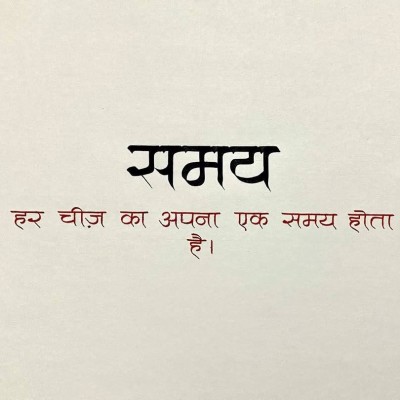 समय
हर चीज़ का अपना एक समय होता
है।